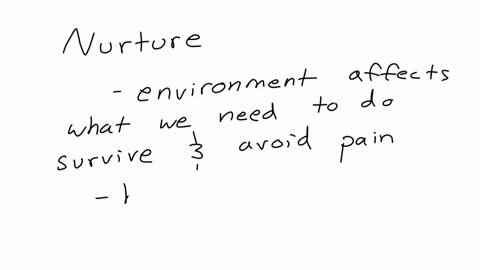 Nurture
- environment affects
what we need to do
survive & avoid pain
-